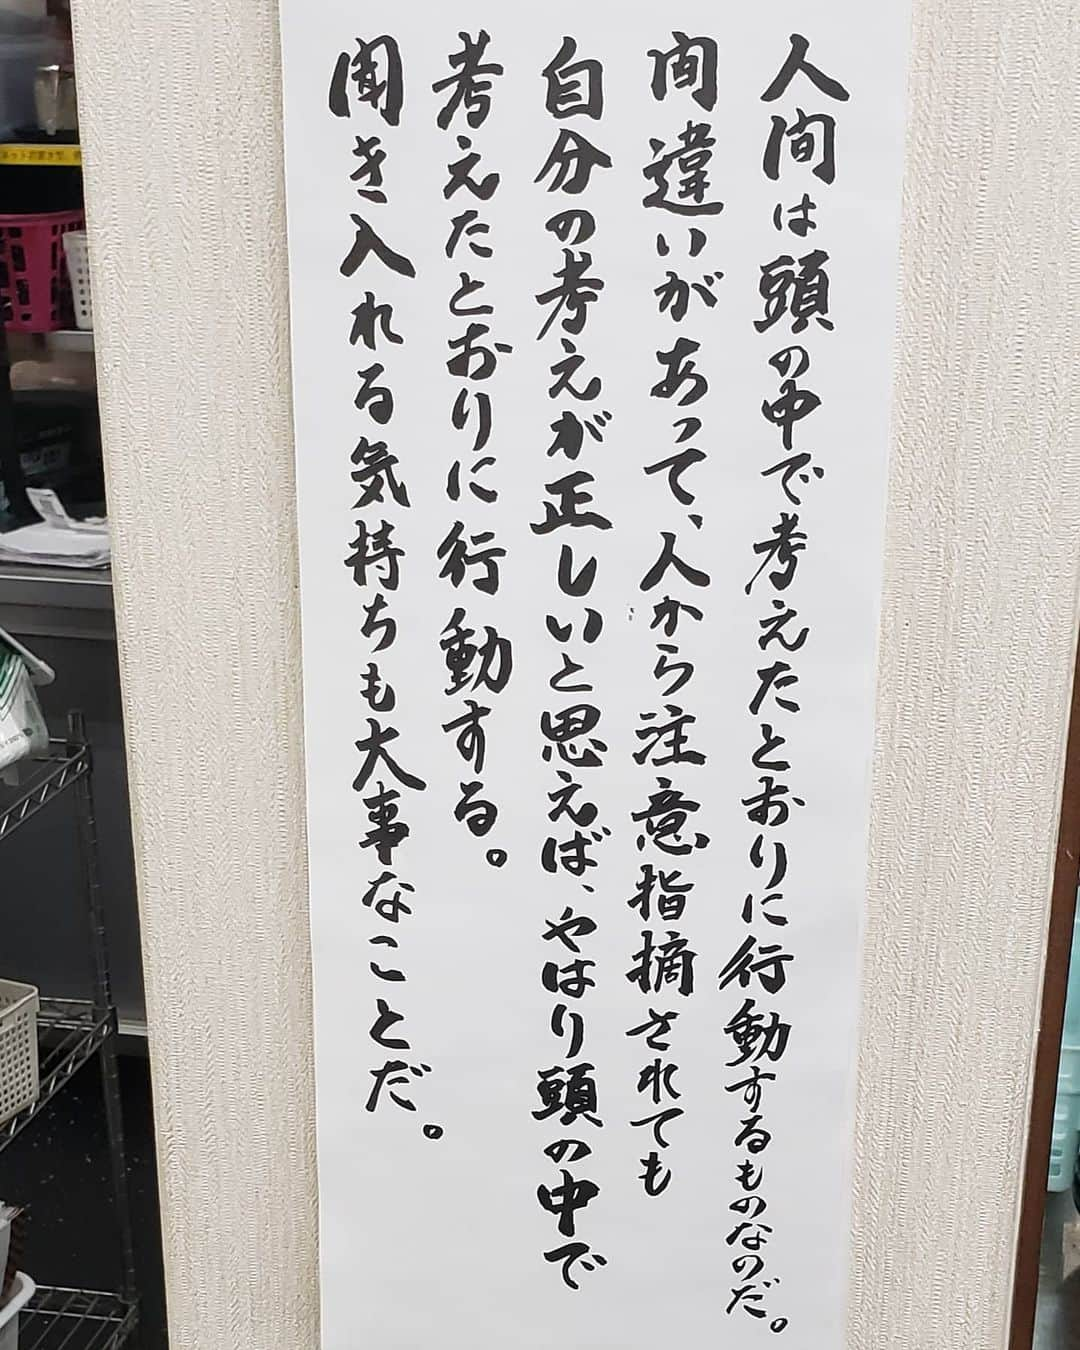 人間は頭の中で考えたとおりに行動するものなのだ。
間違いがあって、人から注意指摘されても
自分の考えが正しいと思えば、やはり頭の中で
考えたとおりに行動する。
聞き入れる気持ちも大事なことだ。